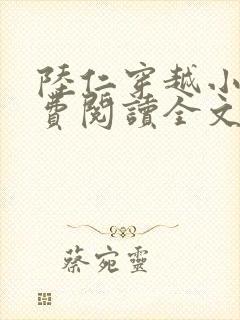 陸仁穿越小
費閱讀全文
蔡宛靈